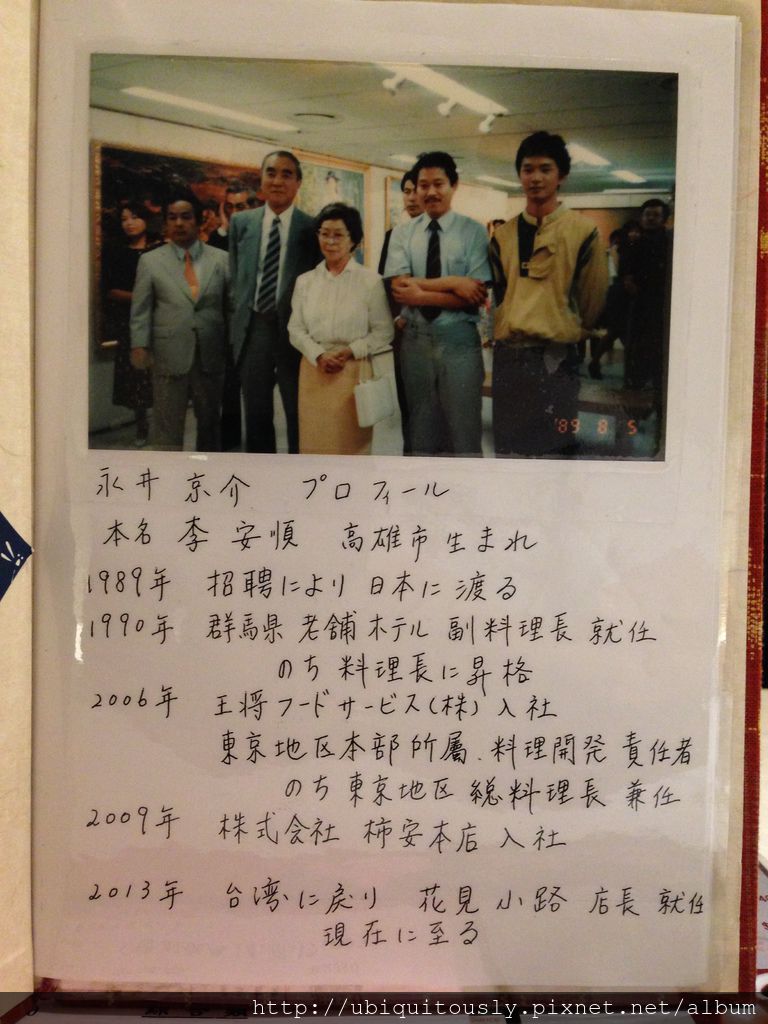 '89 8 5
永井 京介 プロフィール
本名 李 安順 高雄市 生まれ
1989年 招聘により 日本に 渡る
1990年 群馬県 老舗ホテル 副料理長 就任
のち 料理長に昇格
2006年 王将フードサービス(株) 入社
東京地区本部所属、料理開発 責任者
のち 東京地区 総料理長 兼任
2009年 株式会社 柿安本店 入社
2013年 台湾に戻り 花見小路 店長 就任
現在に至る
http://ubiquitously.pixnet.net/album